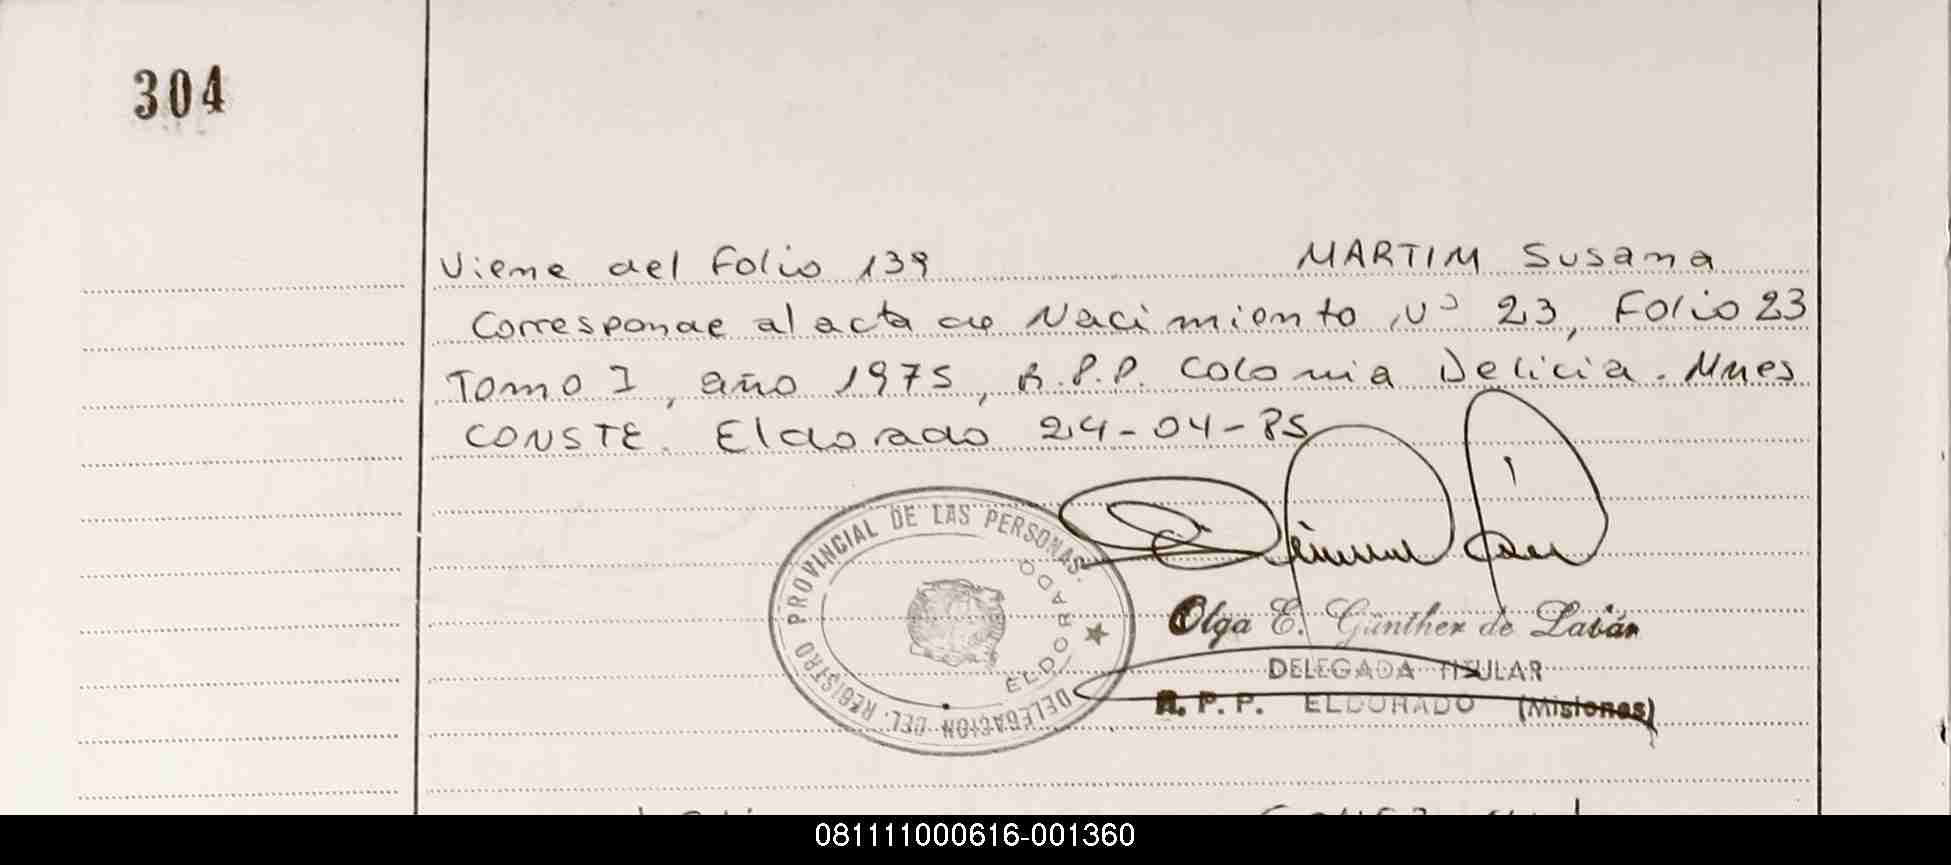 304
Viene del Folio 139 MARTIM Susana
Corresponde al acta de Nacimiento Nº 23, Folio 23
Tomo I, año 1975, R.P.P. Colonia Delicia. Mnes
CONSTE. Eldorado 24-04-85
DELEGACION DEL REGISTRO PROVINCIAL DE LAS PERSONAS.
ELDORADO
Olga E. Günther de
DELEGADA TITULAR
R. P. P. ELDORADO (Misiones)
081111000616-001360